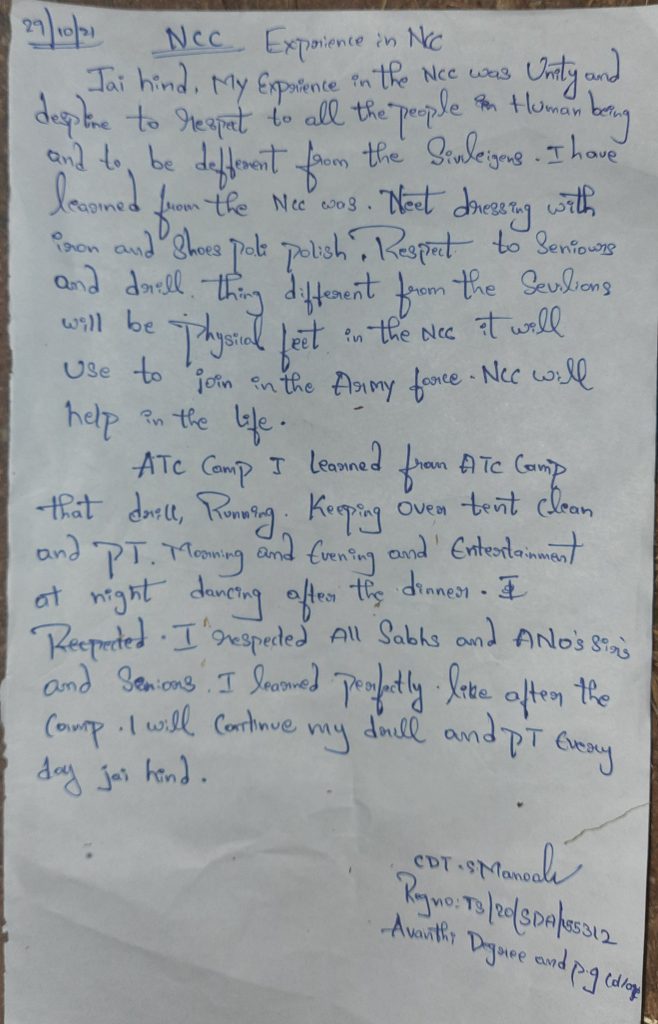 29/10/21
NCC Exprience in NCC
Jai hind, My Exprience in the NCC was Unity and
despline to respect to all the people Human being
and to be defferent from the Siveleigens. I have
learned from the NCC was. Neet dressing with
iron and Shoes poli polish, Respect to Seniours
and drill. thing different from the Sevilions
will be physical feet in the NCC it will
use to join in the Army force. NCC will
help in the life.
ATC Camp I learned from ATC Camp
that drill, Running. Keeping over tent clean
and PT. Morning and Evening and Entertainment
at night dancing after the dinner. I
Recpected. I respected All Sabhs and ANO's Sir's
and Seniors. I learned perfectly like after the
Camp. I will Continue my drill and PT Every
day jai hind.
CDT. S Manoah
Regno: TS/20/SDA/155312
Avanthi Degree and p.g College